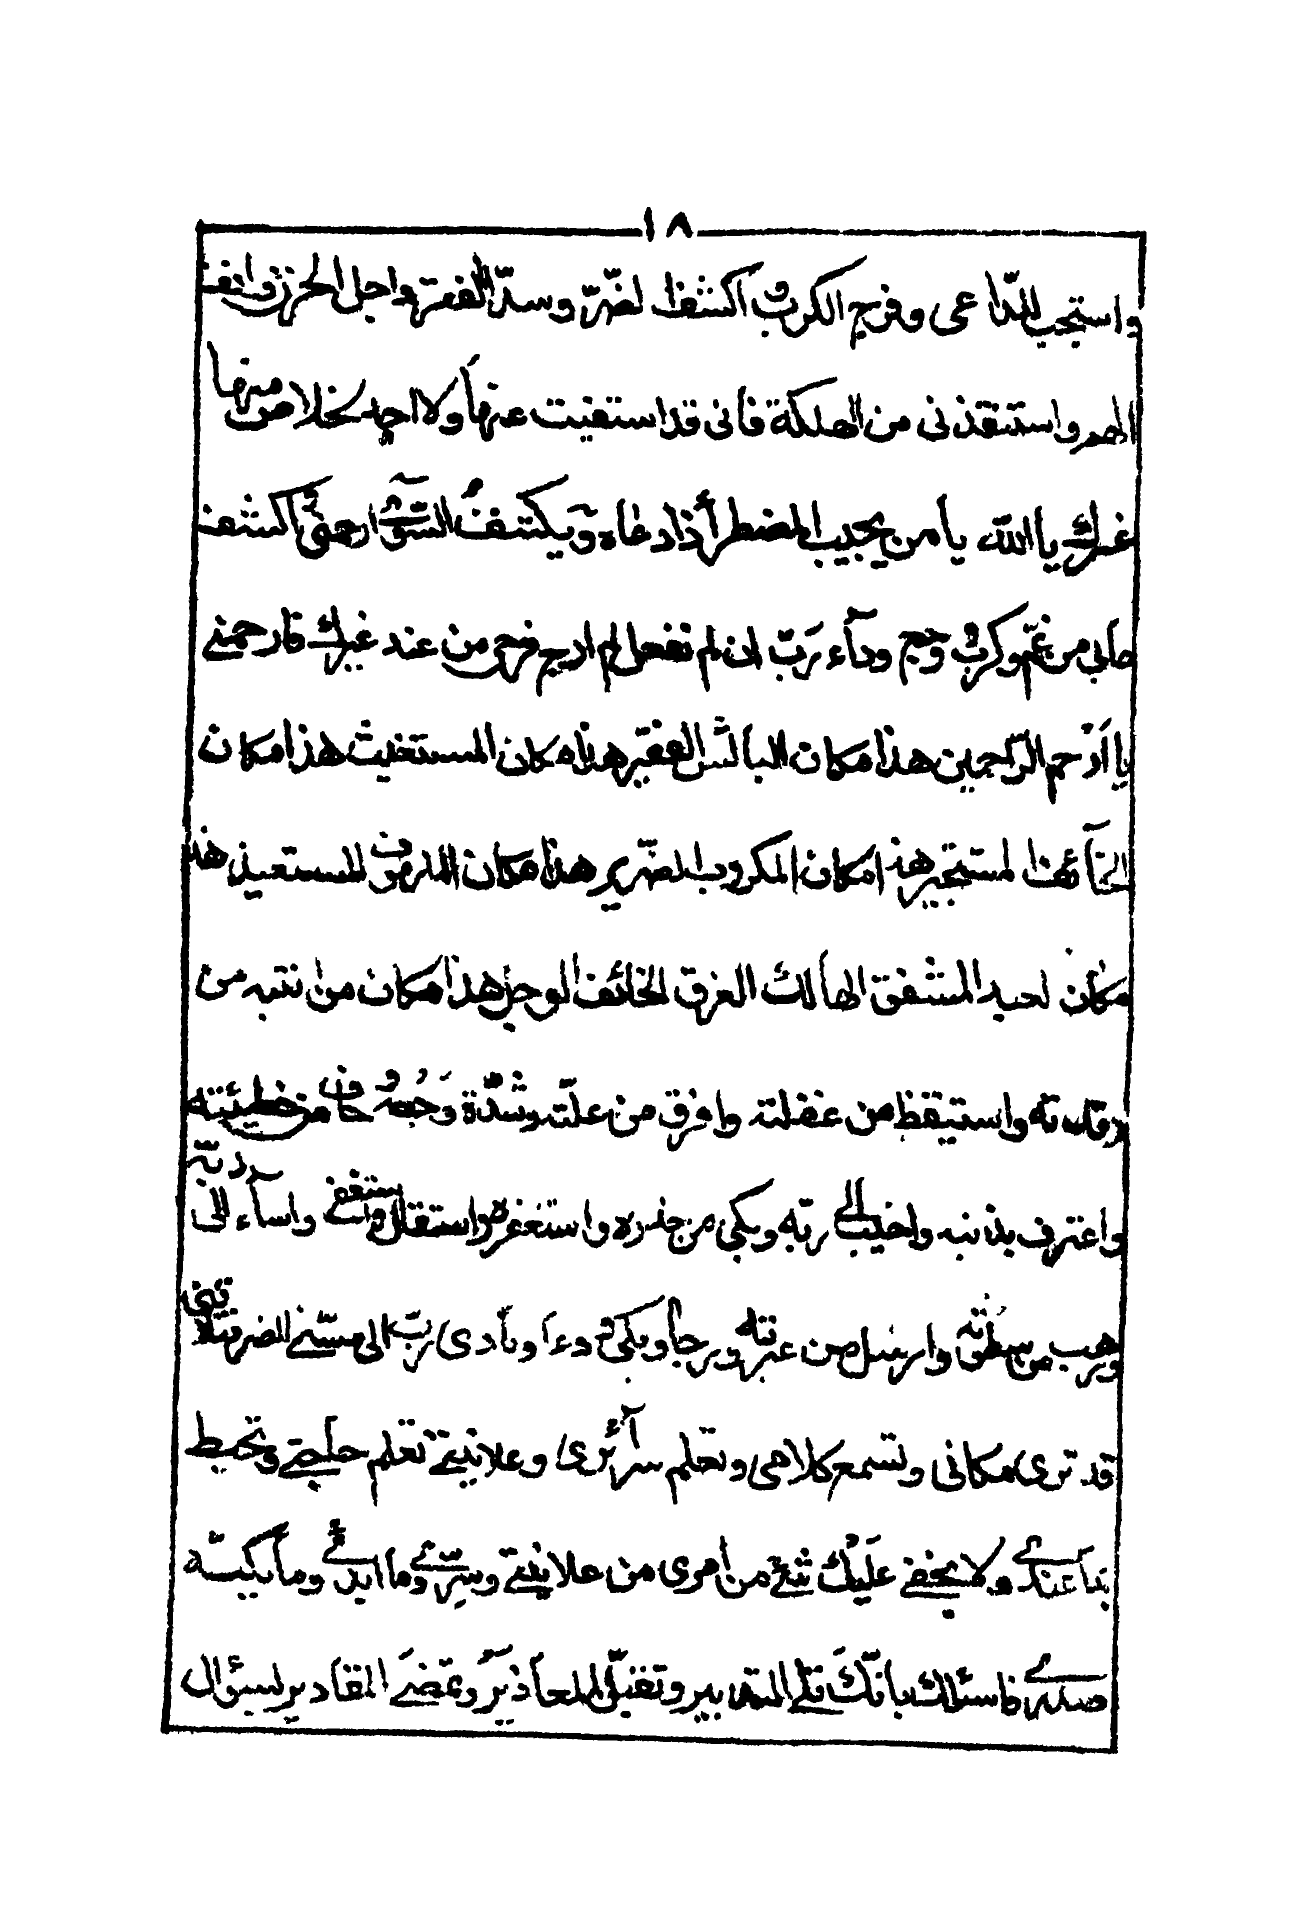 ١٨
واستجب للدّاعى وفرج الكرب واكشف الضرّ وسدّ الفقر واجل الحزن وانف
الهم واستنقذنى من الهلكة فانى قد استفنيت عنها ولا اجد لخلاص منها
غيرك يا الله يا من يجيب المضطر اذا دعاه ويكشف السّوء ارحمنى اكشف
مابى من غمّ وكرب ووجع ودآء ربّ ان لم تفعل لم ارج فرجى من عند غيرك فارحمنى
يا ارحم الراحمين هذا مكان البائس الفقير هذا مكان المستغيث هذا مكان
الخآئف المستجير هذا مكان المكروب الضرير هذا مكان الملهوف المستعيذ هذا
مكان العبد المشفق الهالك الغرق الخائف الوجل هذا مكان من انتبه من
رقدته واستيقظ من غفلته وافرق من علّته وشدّة وجعه وخاف من خطيئته
واعترف بذنبه واخبت الى ربّه وبكى من حذره واستغفر واستقال واستعفى واساء الى ربّه
ورهب من سطوته وارسل من عبرته ورجا وبكى ودعا ونادى ربّ الى مسّنى الضر فتلافنى
قد ترى مكانى وتسمع كلامى وتعلم سرآئرى وعلانيتى تعلم حاجتى وتحيط
بما عندى ولا يخفى عليك شئ من امرى من علانيتى وسرّى وما ابدى وما يكنّه
صدرى فاسئلك بانّك تلى التدبير وتقبل المعاذير وتمضى المقادير سؤال